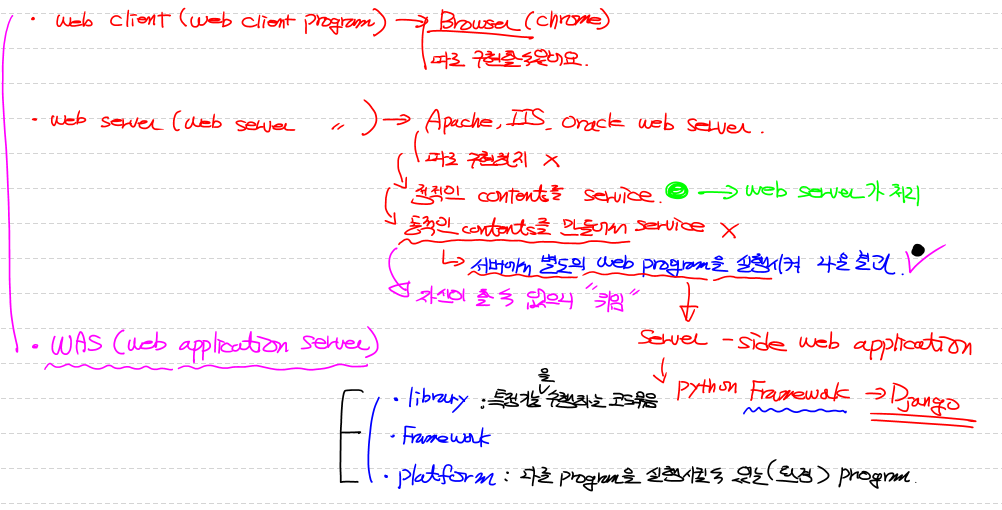 · web client (web client program) → Browser (chrome)
따로 구현할수있어요.
· web server (web server 〃 ) → Apache, IIS, Oracle web server.
따로 구현하지 X
정적인 contents를 service. → web server가 처리
동적인 contents를 만들어서 service X
↳ 서버에서 별도의 web program을 실행시켜 나온 결과.
자신이 할 수 없으니 "위임"
· WAS (web application server)
Server - side web application
python Framework → Django
· library : 특정기능을 수행하는 코드묶음
· Framework
· platform : 다른 program을 실행시킬 수 있는 (환경) program.